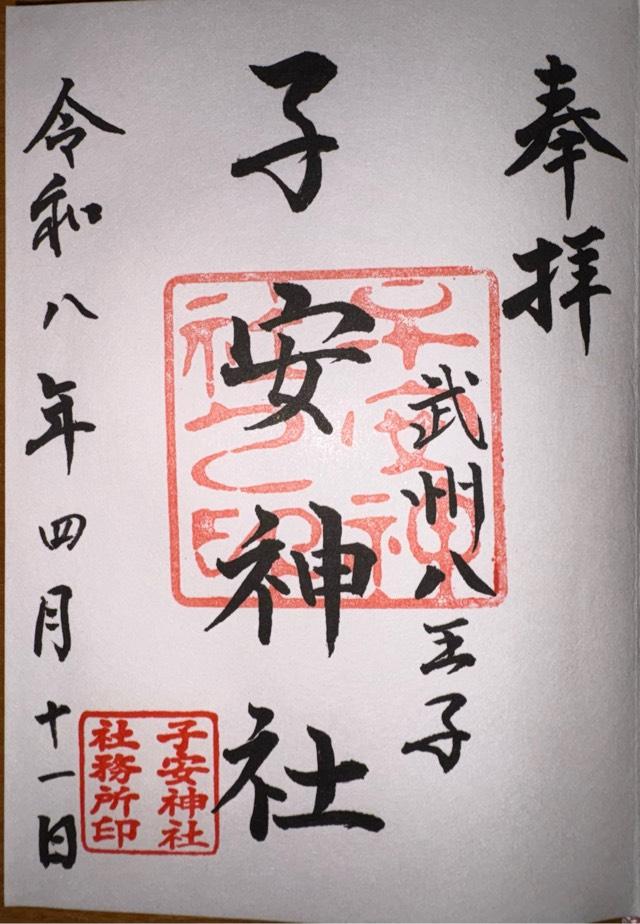 奉拝
武州八王子
子安神社
子安神社之印
令和八年四月十一日
子安神社
社務所印